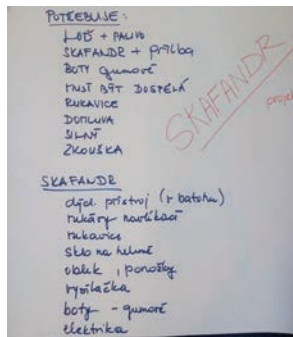 POTŘEBUJE:
LOĎ + PALIVO
SKAFANDR + přilba
BOTY gumové
MUSÍ BÝT DOSPĚLÁ
RUKAVICE
DOMLUVA
SILNÝ
ZKOUŠKA
SKAFANDR
projek
SKAFANDR
dých. přístroj (v batohu)
rukávy navlíkací
rukavice
sklo na helmě
oblek, ponožky
vysílačka
boty - gumové
elektrika